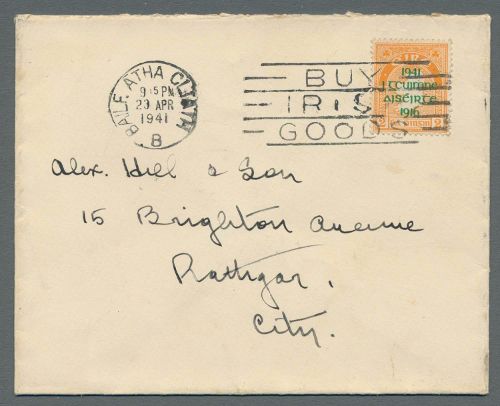 BAILE ÁTHA CLIATH
9.15PM
23 APR
1941
8
BUY
IRISH
GOODS
1941
i gcuimhne
AISÉIRGE
1916
Alex. Hill & Son
15 Brighton Avenue
Rathgar,
City.